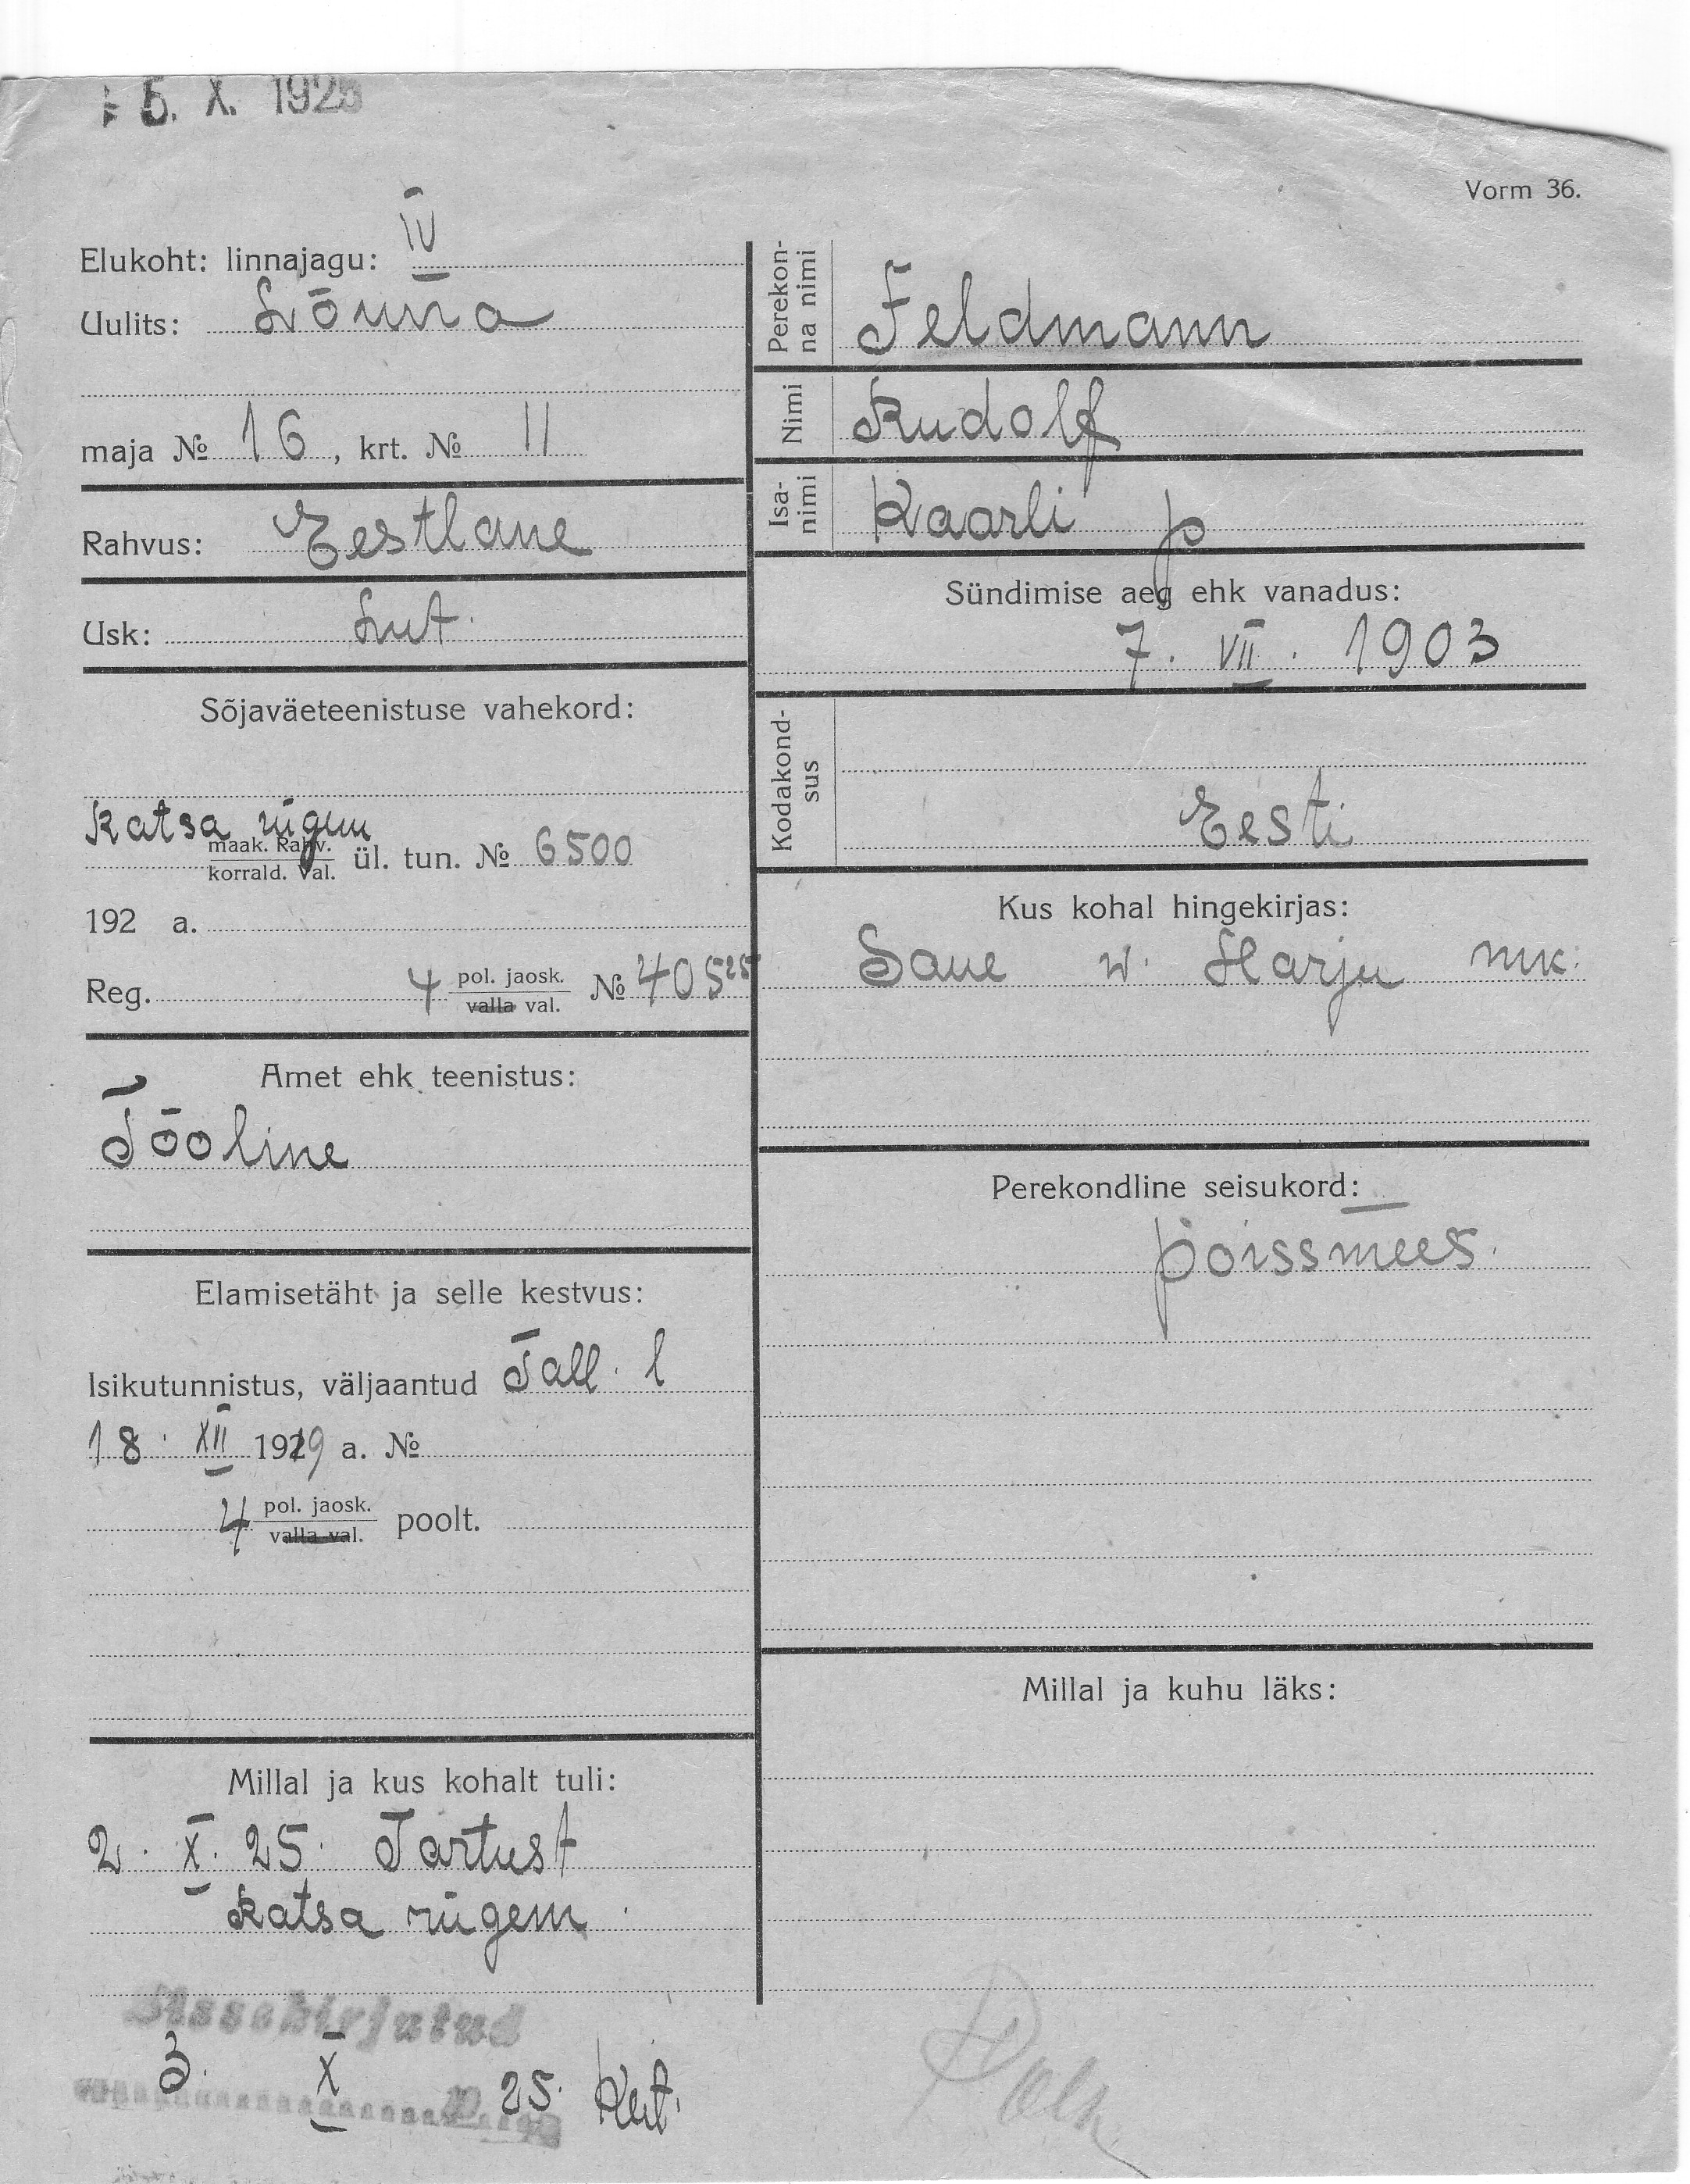 5. X. 1925
Vorm 36.
Elukoht: linnajagu: IV
Uulits: Lõuna
maja № 16, krt. № 11
Rahvus: Eestlane
Usk: Lut.
Sõjaväeteenistuse vahekord:
Katsa rügem
maak. Rahv.
korrald. Val. ül. tun. № 6500
192 a.
Reg. 4 pol. jaosk. № 405 25
valla val.
Amet ehk teenistus:
Tööline
Elamisetäht ja selle kestvus:
Isikutunnistus, väljaantud Tall. l
18. XII 1919 a. №
4 pol. jaosk. poolt.
valla val.
Millal ja kus kohalt tuli:
2. X. 25. Tartust
Katsa rügem.
Sissekirjutud
3. X 25.
Perekonna nimi Feldmann
Nimi Rudolf
Isanimi Kaarli p
Sündimise aeg ehk vanadus:
7. VII. 1903
Kodakondsus
Eesti
Kus kohal hingekirjas:
Saue w. Harju mk.
Perekondline seisukord:
poissmees.
Millal ja kuhu läks: